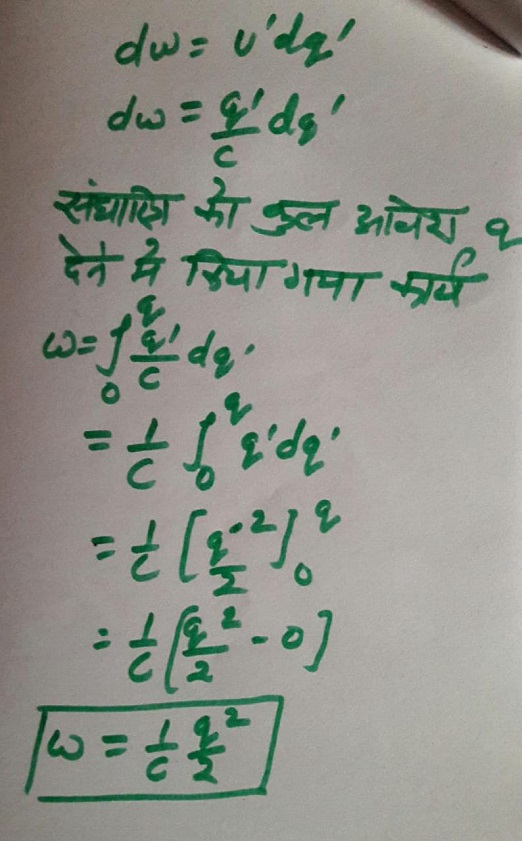 dw = v'dq'
dw = q'/c dq'
संधारित्र को कुल आवेश q
देने में किया गया कार्य
w = ∫₀^q q'/c dq'
= 1/c ∫₀^q q'dq'
= 1/c [q'²/2]₀^q
= 1/c [q²/2 - 0]
w = 1/c q²/2